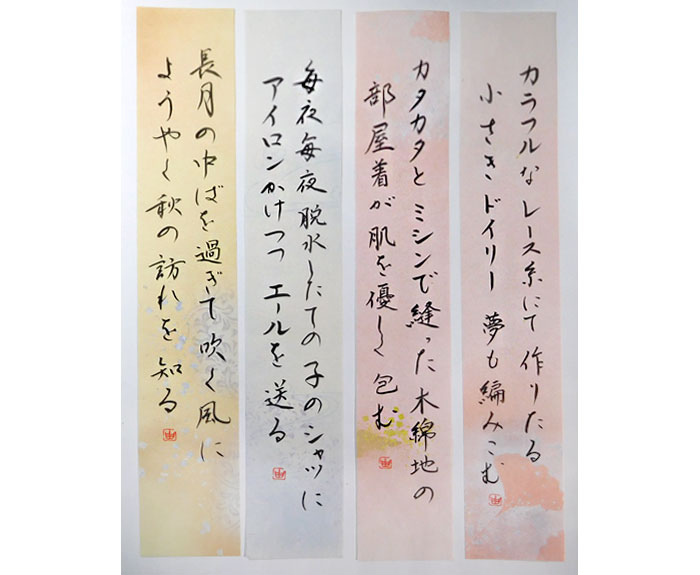 カラフルなレース糸にて作りたる
小さきドイリー夢も編みこむ
カタカタとミシンで縫った木綿地の
部屋着が肌を優しく包む
毎夜毎夜脱水したての子のシャツに
アイロンかけつつエールを送る
長月の中ばを過ぎて吹く風に
ようやく秋の訪れを知る